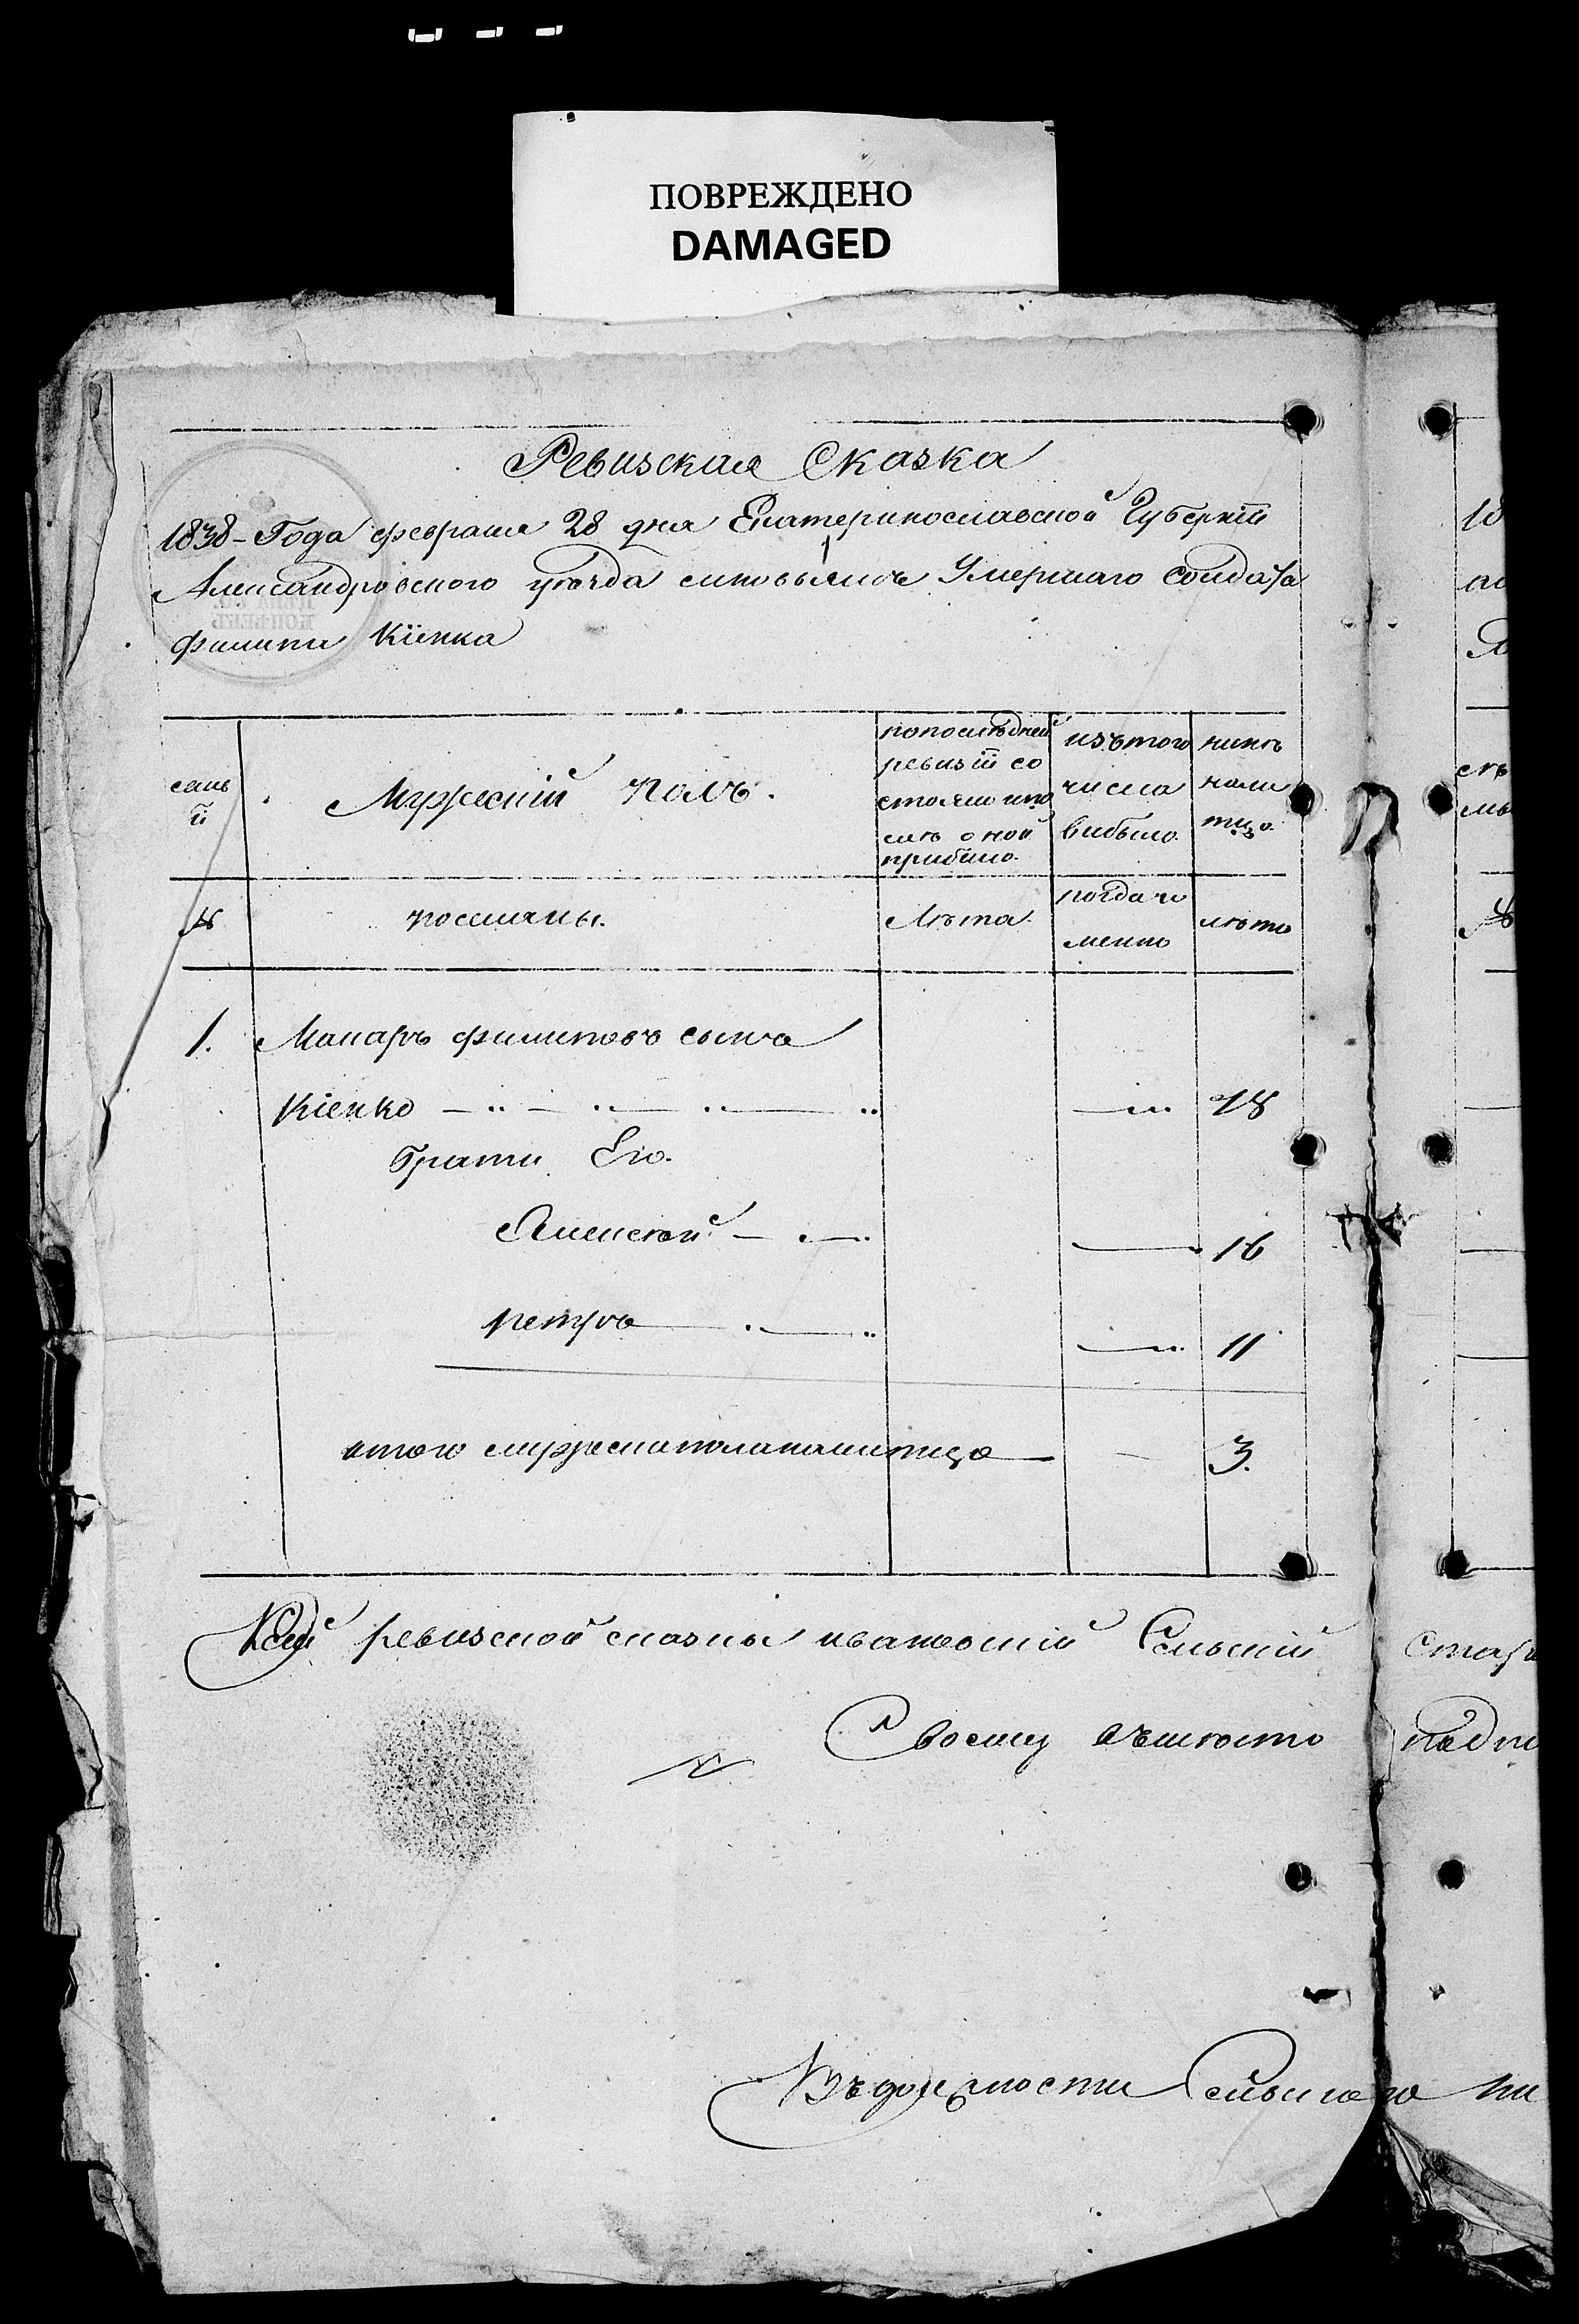 ПОВРЕЖДЕНО
DAMAGED
Ревизская Сказка
1838 - Года февраля 28 дня Екатеринославской Губернїи
Александровского уѣзда сыновьямъ Умершаго Солдата
филипа Кіенка
семьи
Мужескій полъ.
попослѣдней ревизіи состояло ипослѣ оной прибыло.
изътого числа выбыло.
нынѣ налицо.
№
россияны.
Лѣта.
когда именно
лѣта
1. Макаръ филиповъ сынъ
Кіенко 18
Брати Его.
Алексѣй 16
петръ 11
итого мужеска пола налицо 3.
Ксей ревизской сказки Сельскій
Своему
Въдолжности Сельскаго пи